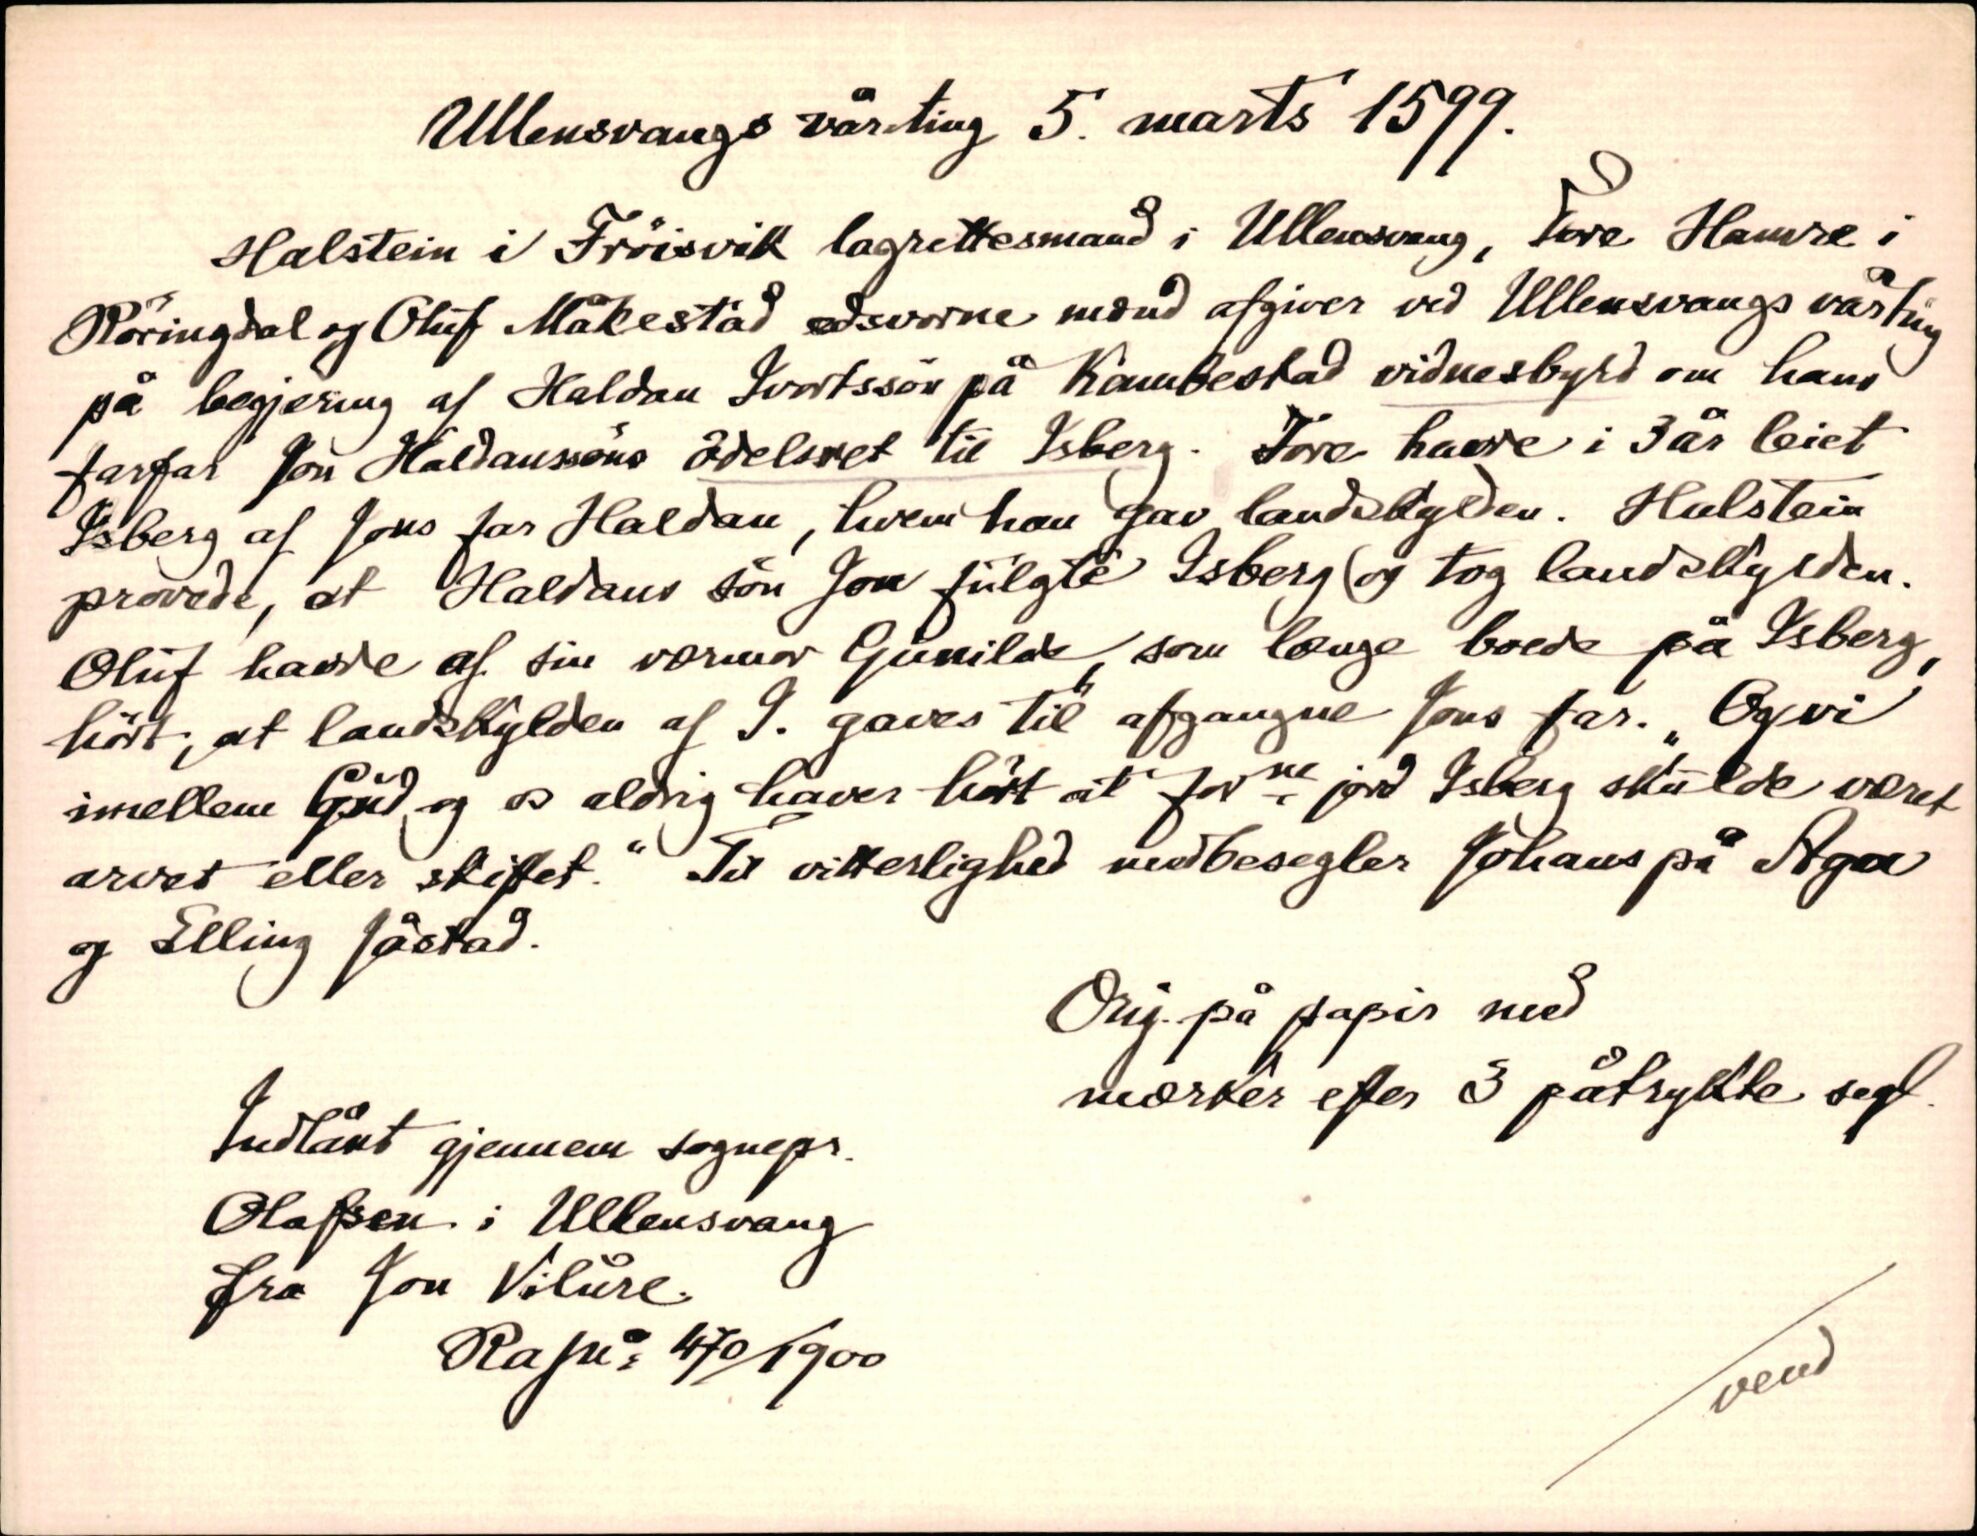 Ullensvangs vårting 5. marts 1599.
Halstein i Fröisvik lagrettesmand i Ullensvang, Tore Hamre i
Röringdal og Oluf Måkestad edsvorne mænd afgiver ved Ullensvangs vårting
på begjering af Haldan Ivortssön på Kambestad vidnesbyrd om hans
farfar Jon Haldanssöns odelsret til Isberg. Tore havde i 3 år leiet
Isberg af Jons far Haldan, hvem han gav landskylden. Halstein
provede, at Haldans sön Jon fulgte Isberg og tog landskylden.
Oluf havde af sin værmor Gunilde, som længe boede på Isberg,
hört, at landskylden af I. gaves til afgangne Jons far. „Og vi
imellem Gud og os aldrig haver hört at forne jord Isberg skulde været
arvet eller skiftet." Til vitterlighed medbesegler Johans på Aga
og Elling Jåstad.
Orig. på papir med
mærker efter 3 påtrykte segl.
Indlånt gjennem sognepr.
Olafsen i Ullensvang
fra Jon Vilure.
Rajn: 470/1900
vend